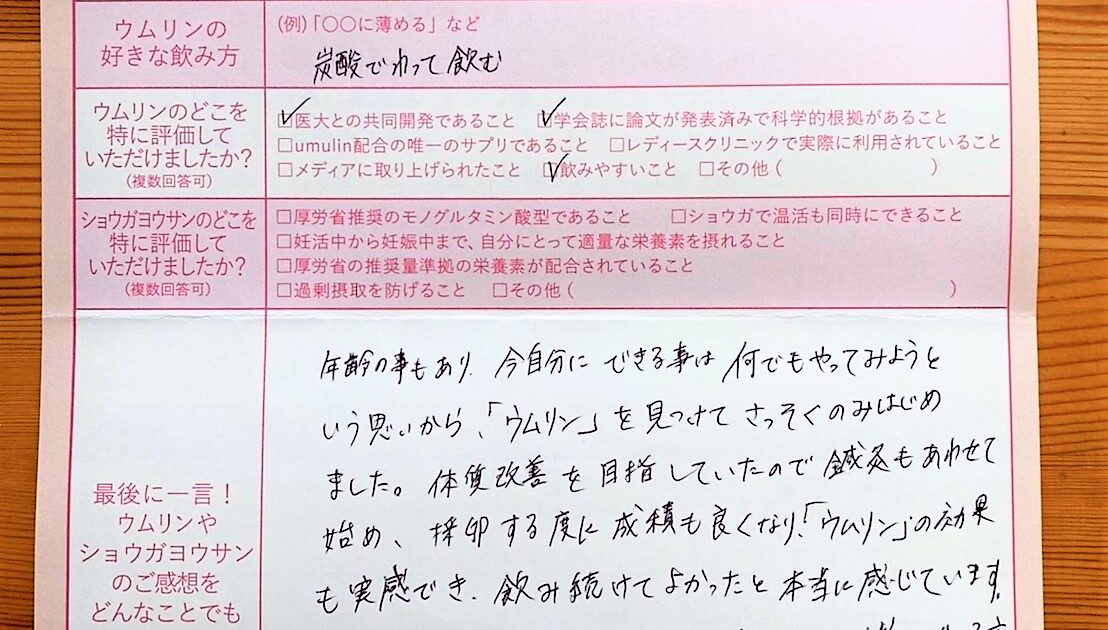 ウムリンの
好きな飲み方
(例)「〇〇に薄める」など
炭酸でわって飲む
ウムリンのどこを
特に評価して
いただけましたか?
(複数回答可)
□医大との共同開発であること □学会誌に論文が発表済みで科学的根拠があること
□umulin配合の唯一のサプリであること □レディースクリニックで実際に利用されていること
□メディアに取り上げられたこと □飲みやすいこと □その他( )
ショウガヨウサンのどこを
特に評価して
いただけましたか?
(複数回答可)
□厚労省推奨のモノグルタミン酸型であること □ショウガで温活も同時にできること
□妊活中から妊娠中まで、自分にとって適量な栄養素を摂れること
□厚労省の推奨量準拠の栄養素が配合されていること
□過剰摂取を防げること □その他( )
最後に一言!
ウムリンや
ショウガヨウサン
のご感想を
どんなことでも
年齢の事もあり、今自分にできる事は何でもやってみようと
いう思いから、「ウムリン」を見つけてさっそくのみはじめ
ました。体質改善を目指していたので鍼灸もあわせて
始め、採卵する度に成績も良くなり、「ウムリン」の効果
も実感でき、飲み続けてよかったと本当に感じています。